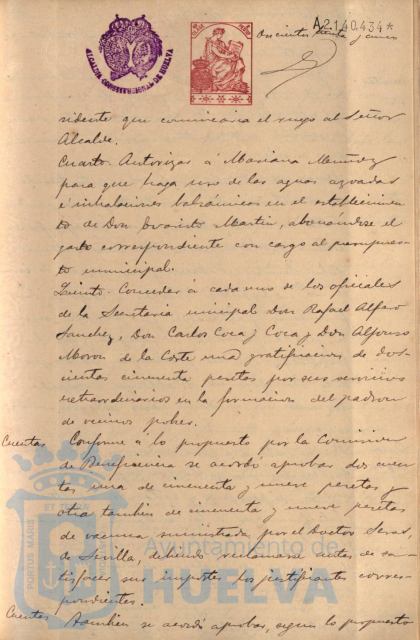 A2140,434*
ALCALDIA CONSTITUCIONAL DE HUELVA
sidente que comunicaría el ruego al Señor
Alcalde.
Cuarto. Autorizar á Mariana Muñoz
para que haga uso de las aguas azoadas
é inhalaciones balsámicas en el establecimien
to de Don Evaristo Martin, abonándose el
gasto correspondiente con cargo al presupues
to municipal.
Quinto. Conceder á cada uno de los oficiales
de la Secretaría municipal Don Rafael Alfaro
Sanchez, Don Carlos Coca y Coca y Don Alfonso
Moron de la Corte una gratificacion de dos-
cientas cincuenta pesetas por sus servicios
extraordinarios en la formacion del padron
de vecinos pobres.
Cuentas Conforme á lo propuesto por la Comision
de Beneficencia se acordó aprobar dos cuen
tas una de cincuenta y nueve pesetas y
otra tambien de cincuenta y nueve pesetas
de vacuna suministrada por el Doctor
de Sevilla, debiendo reclamarse antes de sa-
tisfacer sus importes los justificantes corres-
pondientes.
Cuentas Tambien se acordó aprobar, segun lo propuesto
PORTUS MARIS
Ayuntamiento de
HUELVA